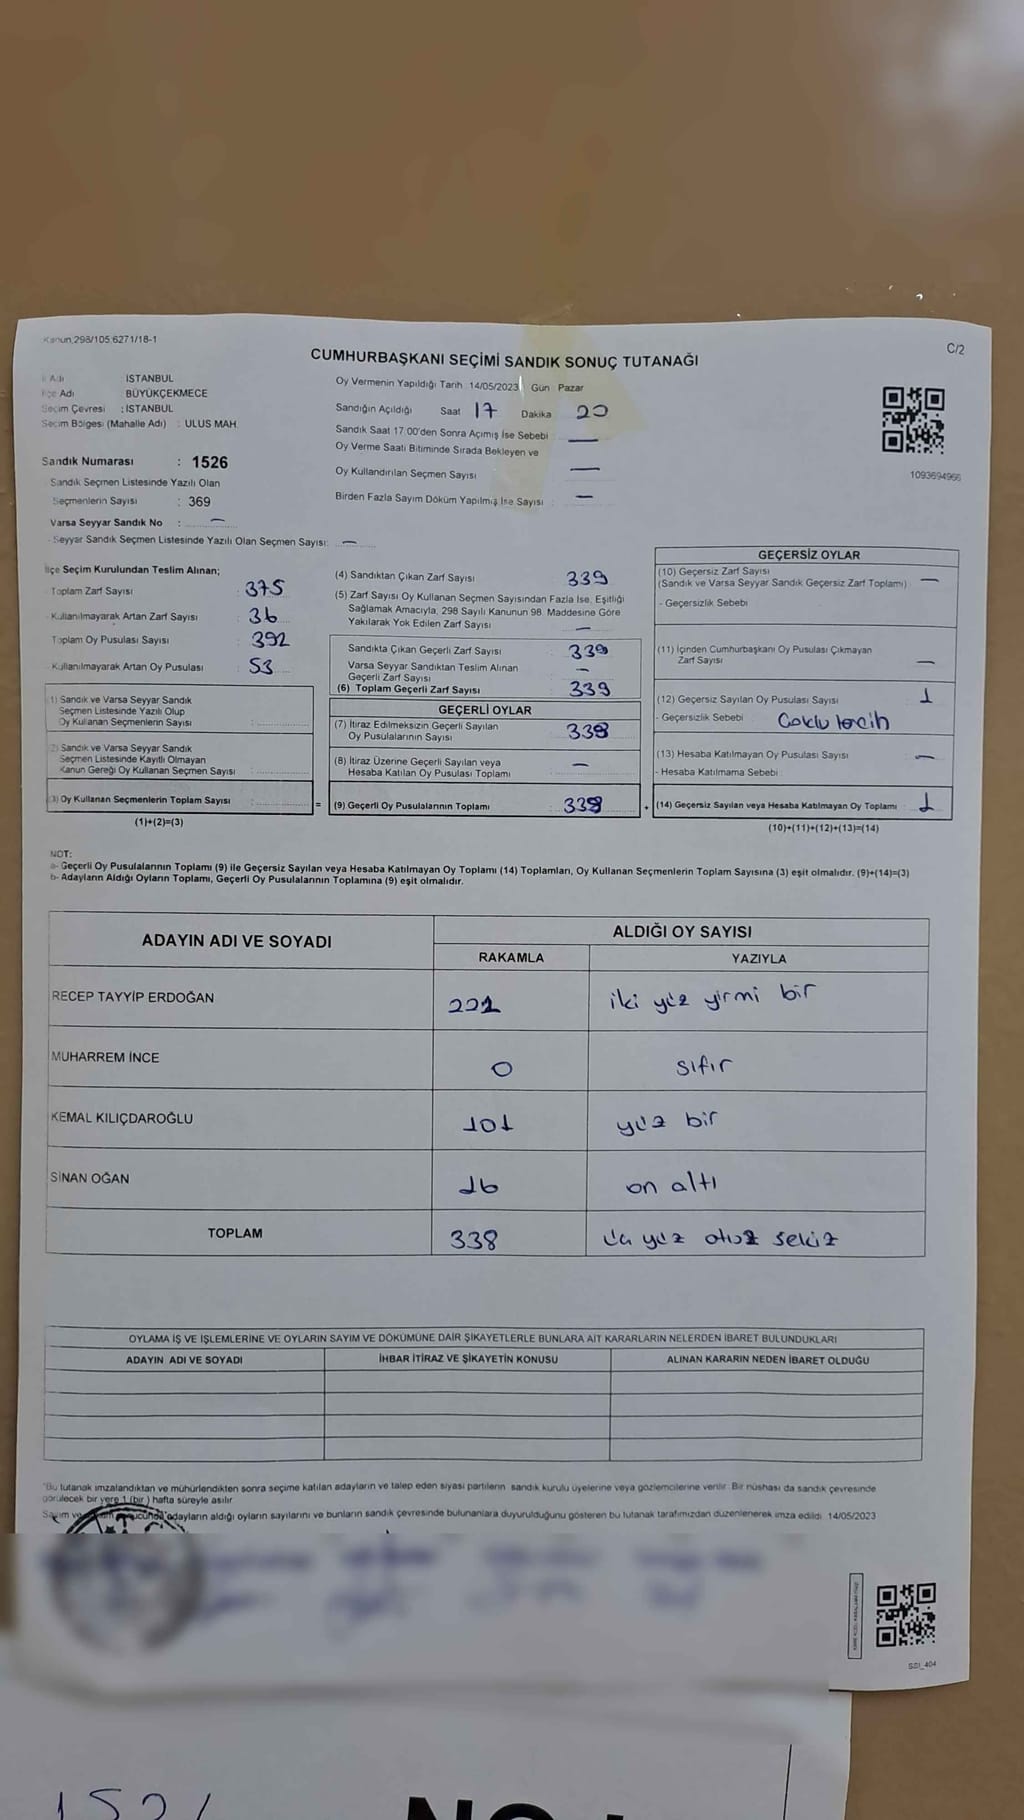 Kanun 298/105 6271/18-1
C/2
CUMHURBAŞKANI SEÇİMİ SANDIK SONUÇ TUTANAĞI
Adı İSTANBUL
Adı : BÜYÜKÇEKMECE
Seçim Çevresi : İSTANBUL
Seçim Bölgesi (Mahalle Adı) : ULUS MAH.
Sandık Numarası : 1526
Sandık Seçmen Listesinde Yazılı Olan
Seçmenlerin Sayısı : 369
Varsa Seyyar Sandık No : —
- Seyyar Sandık Seçmen Listesinde Yazılı Olan Seçmen Sayısı: —
Oy Vermenin Yapıldığı Tarih 14/05/2023 Gün Pazar
Sandığın Açıldığı Saat 17 Dakika 20
Sandık Saat 17:00'den Sonra Açımış İse Sebebi —
Oy Verme Saati Bitiminde Sırada Bekleyen ve
Oy Kullandırılan Seçmen Sayısı —
Birden Fazla Sayım Döküm Yapılmış İse Sayısı : —
1093694966
İlçe Seçim Kurulundan Teslim Alınan;
- Toplam Zarf Sayısı : 375
- Kullanılmayarak Artan Zarf Sayısı : 36
Toplam Oy Pusulası Sayısı : 392
- Kullanılmayarak Artan Oy Pusulası : 53
(1) Sandık ve Varsa Seyyar Sandık
Seçmen Listesinde Yazılı Olup
Oy Kullanan Seçmenlerin Sayısı :
(2) Sandık ve Varsa Seyyar Sandık
Seçmen Listesinde Kayıtlı Olmayan
Kanun Gereği Oy Kullanan Seçmen Sayısı :
(3) Oy Kullanan Seçmenlerin Toplam Sayısı :
(1)+(2)=(3)
=
(4) Sandıktan Çıkan Zarf Sayısı 339
(5) Zarf Sayısı Oy Kullanan Seçmen Sayısından Fazla İse, Eşitliği
Sağlamak Amacıyla, 298 Sayılı Kanunun 98. Maddesine Göre
Yakılarak Yok Edilen Zarf Sayısı —
Sandıkta Çıkan Geçerli Zarf Sayısı 339
Varsa Seyyar Sandıktan Teslim Alınan
Geçerli Zarf Sayısı —
(6) Toplam Geçerli Zarf Sayısı 339
GEÇERLİ OYLAR
(7) İtiraz Edilmeksizin Geçerli Sayılan
Oy Pusulalarının Sayısı 338
(8) İtiraz Üzerine Geçerli Sayılan veya
Hesaba Katılan Oy Pusulası Toplamı —
(9) Geçerli Oy Pusulalarının Toplamı 338
+
GEÇERSİZ OYLAR
(10) Geçersiz Zarf Sayısı
(Sandık ve Varsa Seyyar Sandık Geçersiz Zarf Toplamı) —
- Geçersizlik Sebebi
(11) İçinden Cumhurbaşkanı Oy Pusulası Çıkmayan
Zarf Sayısı —
(12) Geçersiz Sayılan Oy Pusulası Sayısı 1
- Geçersizlik Sebebi Çoklu tercih
(13) Hesaba Katılmayan Oy Pusulası Sayısı —
- Hesaba Katılmama Sebebi
(14) Geçersiz Sayılan veya Hesaba Katılmayan Oy Toplamı 1
(10)+(11)+(12)+(13)=(14)
NOT:
a- Geçerli Oy Pusulalarının Toplamı (9) ile Geçersiz Sayılan veya Hesaba Katılmayan Oy Toplamı (14) Toplamları, Oy Kullanan Seçmenlerin Toplam Sayısına (3) eşit olmalıdır. (9)+(14)=(3)
b- Adayların Aldığı Oyların Toplamı, Geçerli Oy Pusulalarının Toplamına (9) eşit olmalıdır.
ADAYIN ADI VE SOYADI
ALDIĞI OY SAYISI
RAKAMLA YAZIYLA
RECEP TAYYİP ERDOĞAN 221 iki yüz yirmi bir
MUHARREM İNCE 0 sıfır
KEMAL KILIÇDAROĞLU 101 yüz bir
SİNAN OĞAN 16 on altı
TOPLAM 338 üç yüz otuz sekiz
OYLAMA İŞ VE İŞLEMLERİNE VE OYLARIN SAYIM VE DÖKÜMÜNE DAİR ŞİKAYETLERLE BUNLARA AİT KARARLARIN NELERDEN İBARET BULUNDUKLARI
ADAYIN ADI VE SOYADI İHBAR İTİRAZ VE ŞİKAYETİN KONUSU ALINAN KARARIN NEDEN İBARET OLDUĞU
*Bu tutanak imzalandıktan ve mühürlendikten sonra seçime katılan adayların ve talep eden siyasi partilerin sandık kurulu üyelerine veya gözlemcilerine verilir. Bir nüshası da sandık çevresinde
görülecek bir yere 1 (bir ) hafta süreyle asılır
Sayım ve adayların aldığı oyların sayılarını ve bunların sandık çevresinde bulunanlara duyurulduğunu gösteren bu tutanak tarafımızdan düzenlenerek imza edildi. 14/05/2023
SSI_404